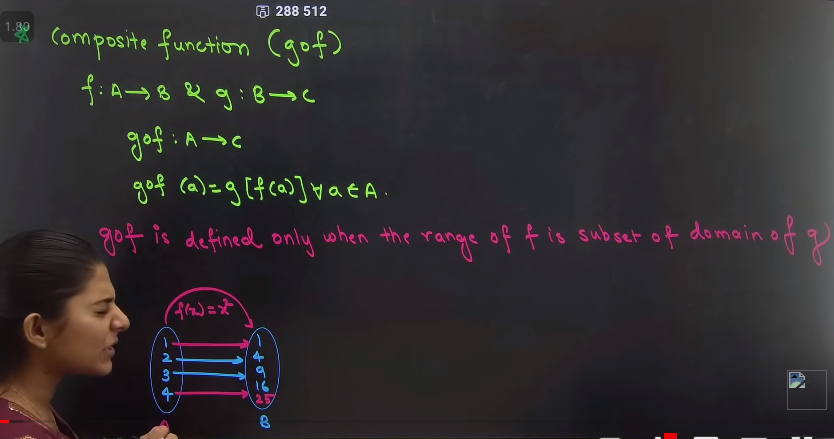 288 512
1.80
Composite function (gof)
f : A → B & g : B → C
gof : A → C
gof (a) = g [f(a)] ∀ a ∈ A.
gof is defined only when the range of f is subset of domain of g)
f(x) = x²
1 1
2 4
3 9
4 16
25
B